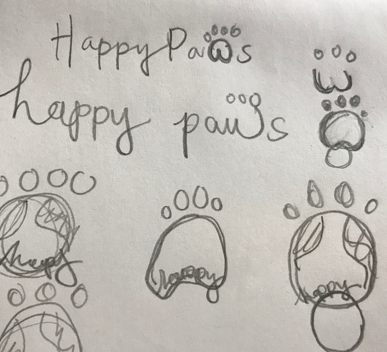 HappyPaws
happy paws
w
happy
happy
happy